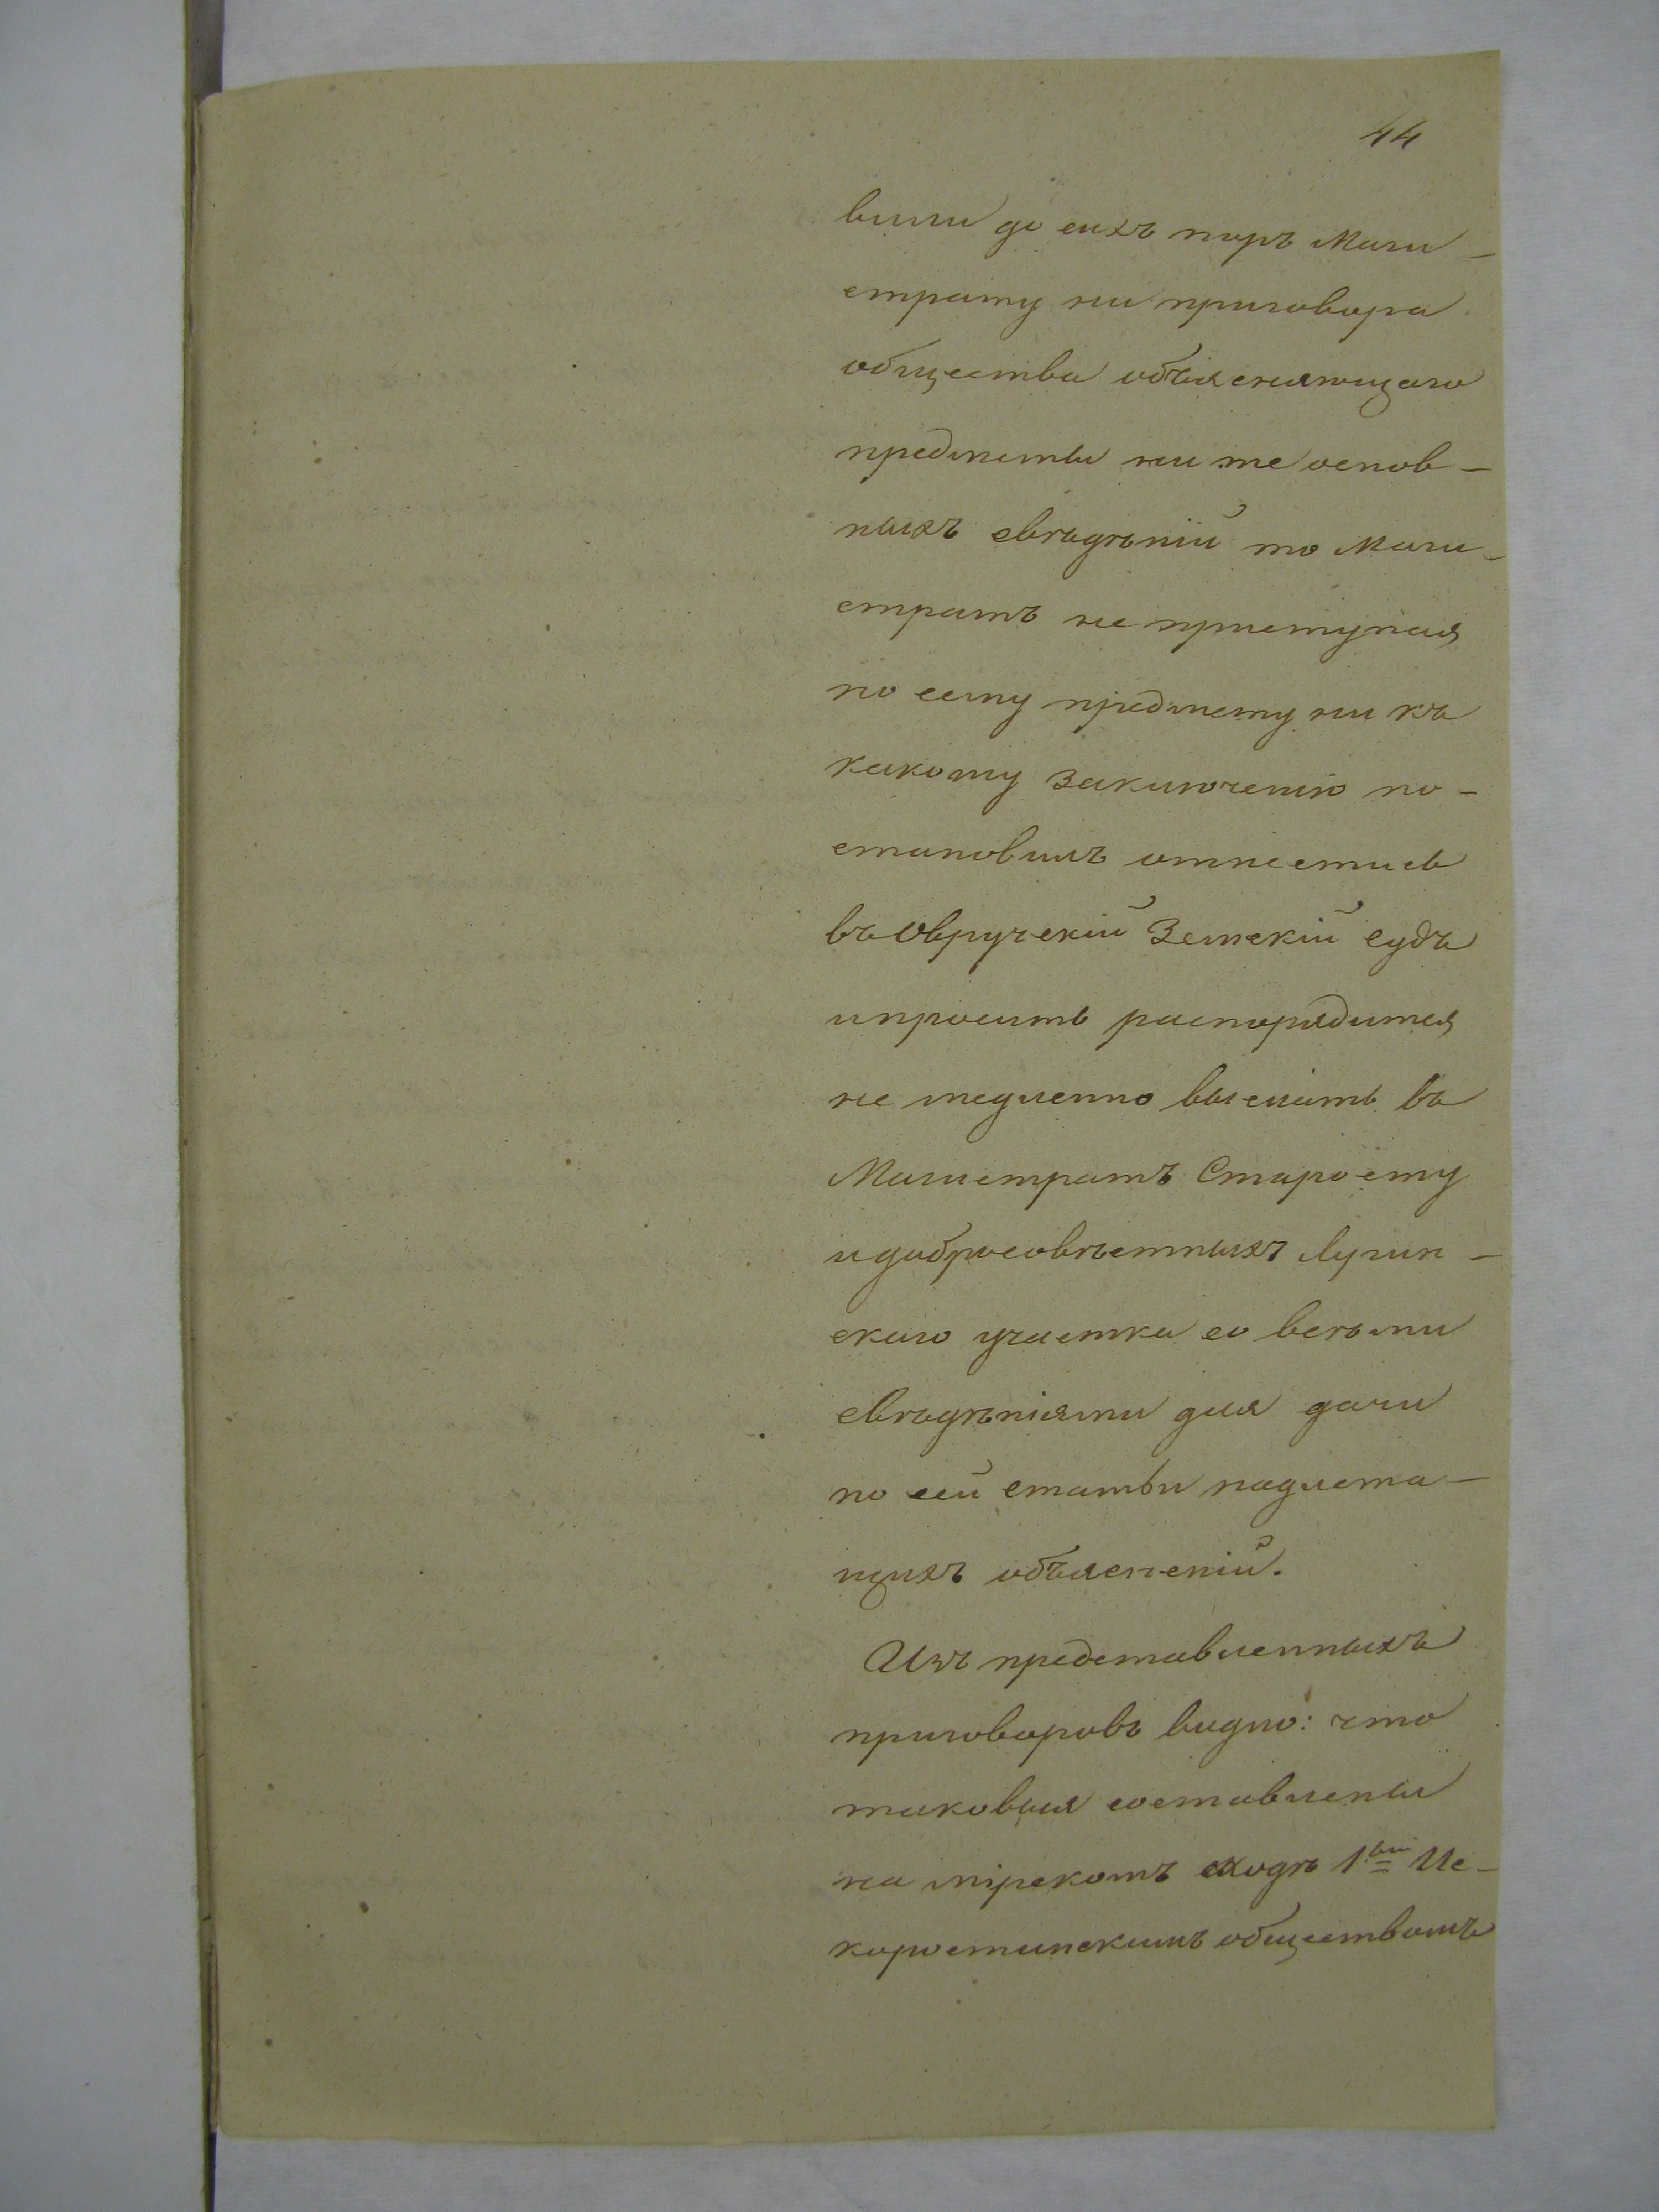 44
вили до сихъ поръ Маги-
страту ни приговора
общества объясняющаго
предметы ни же основ-
ныхъ свѣдѣній то Маги-
стратъ не приступая
по сему предмету ни къ
какому заключенію по-
становилъ отнестись
въ Овручскій Земскій Судъ
и просить распорядится
не медленно выслать въ
Магистратъ Старосту
и добросовѣстныхъ Лугин-
скаго участка со всѣми
свѣдѣніями для дачи
по сей статьи надлежа-
щихъ объясненій.
Изъ представленныхъ
приговоровъ видно: что
таковыя составлены
на мірскомъ сходѣ 1ый Ис-
коростинскимъ обществомъ